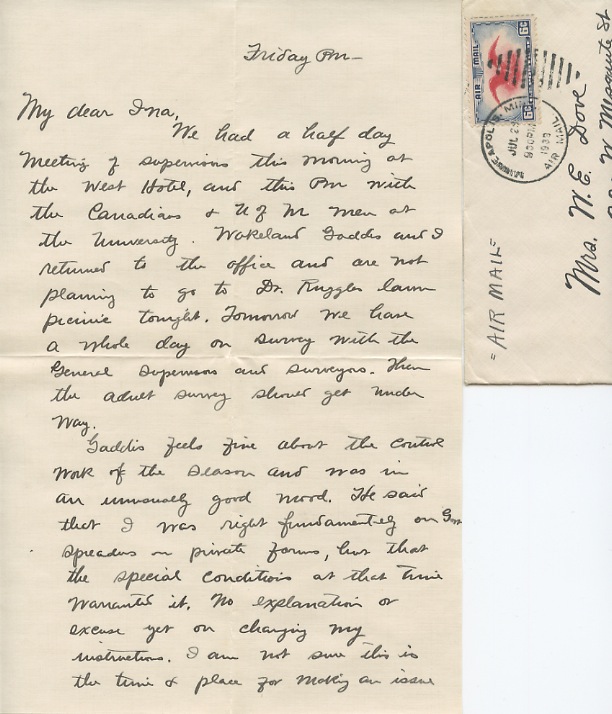 Friday Pm-
My dear Ina,
We had a half day
meeting of supervisors this morning at
the West Hotel, and this Pm with
the Canadians & U of M men at
the University. Wakeland Gaddis and I
returned to the office and are not
planning to go to Dr. Ruggles lawn
picnic tonight. Tomorrow we have
a whole day on survey with the
General supervisors and surveyors. Then
the adult survey should get under
way.
Gaddis feels fine about the control
work of the season and was in
an unusually good mood. He said
that I was right fundamentally on Gov
spreaders on private farms, but that
the special conditions at that time
warranted it. No explanation or
excuse yet on changing my
instructions. I am not sure this is
the time & place for making an issue
AIR MAIL
6¢ 6¢
MINNEAPOLIS, MINN
JUL 29
930PM
1939
AIR MAIL
Mrs. W. E. Dove
W Mesquite St
=AIR MAIL=